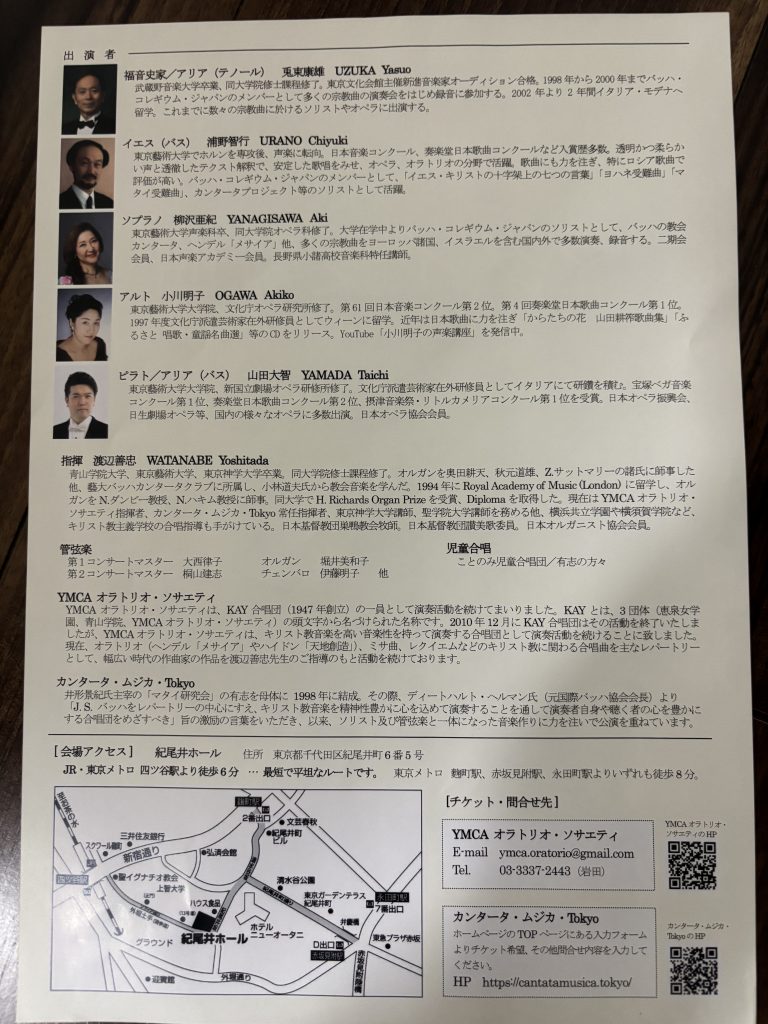 出 演 者
福音史家／アリア（テノール）　兎東康雄　UZUKA Yasuo
武蔵野音楽大学卒業、同大学院修士課程修了。東京文化会館主催新進音楽家オーディション合格。1998 年から 2000 年までバッハ・
コレギウム・ジャパンのメンバーとして多くの宗教曲の演奏会をはじめ録音に参加する。2002 年より 2 年間イタリア・モデナへ
留学。これまでに数々の宗教曲に於けるソリストやオペラに出演する。
イエス（バス）　浦野智行　URANO Chiyuki
東京藝術大学でホルンを専攻後、声楽に転向。日本音楽コンクール、奏楽堂日本歌曲コンクールなど入賞歴多数。透明かつ柔らか
い声と透徹したテクスト解釈で、安定した歌唱をみせ、オペラ、オラトリオの分野で活躍。歌曲にも力を注ぎ、特にロシア歌曲で
評価が高い。バッハ・コレギウム・ジャパンのメンバーとして、「イエス・キリストの十字架上の七つの言葉」「ヨハネ受難曲」「マ
タイ受難曲」、カンタータプロジェクト等のソリストとして活躍。
ソプラノ　柳沢亜紀　YANAGISAWA Aki
東京藝術大学声楽科卒、同大学院オペラ科修了。大学在学中よりバッハ・コレギウム・ジャパンのソリストとして、バッハの教会
カンタータ、ヘンデル「メサイア」他、多くの宗教曲をヨーロッパ諸国、イスラエルを含む国内外で多数演奏、録音する。二期会
会員、日本声楽アカデミー会員。長野県小諸高校音楽科特任講師。
アルト　小川明子　OGAWA Akiko
東京藝術大学大学院、文化庁オペラ研究所修了。第 61 回日本音楽コンクール第 2 位。第 4 回奏楽堂日本歌曲コンクール第 1 位。
1997 年度文化庁派遣芸術家在外研修員としてウィーンに留学。近年は日本歌曲に力を注ぎ「からたちの花　山田耕筰歌曲集」「ふ
るさと 唱歌・童謡名曲選」等の CD をリリース。YouTube「小川明子の声楽講座」を発信中。
ピラト／アリア（バス）　山田大智　YAMADA Taichi
東京藝術大学大学院、新国立劇場オペラ研修所修了。文化庁派遣芸術家在外研修員としてイタリアにて研鑽を積む。宝塚ベガ音楽
コンクール第 1 位、奏楽堂日本歌曲コンクール第 2 位、摂津音楽祭・リトルカメリアコンクール第 1 位を受賞。日本オペラ振興会、
日生劇場オペラ等、国内の様々なオペラに多数出演。日本オペラ協会会員。
指揮　渡辺善忠　WATANABE Yoshitada
青山学院大学、東京藝術大学、東京神学大学卒業。同大学院修士課程修了。オルガンを奥田耕天、秋元道雄、Z.サットマリーの諸氏に師事した
他、藝大バッハカンタータクラブに所属し、小林道夫氏から教会音楽を学んだ。1994 年に Royal Academy of Music (London) に留学し、オル
ガンを N.ダンビー教授、N.ハキム教授に師事。同大学で H. Richards Organ Prize を受賞、Diploma を取得した。現在は YMCA オラトリオ・
ソサエティ指揮者、カンタータ・ムジカ・Tokyo 常任指揮者、東京神学大学講師、聖学院大学講師を務める他、横浜共立学園や横須賀学院など、
キリスト教主義学校の合唱指導も手がけている。日本基督教団巣鴨教会牧師。日本基督教団讃美歌委員。日本オルガニスト協会会員。
管弦楽　児童合唱
第 1 コンサートマスター　大西律子　オルガン　堀井美和子　ことのみ児童合唱団／有志の方々
第 2 コンサートマスター　桐山建志　チェンバロ　伊藤明子　他
YMCA オラトリオ・ソサエティ
YMCA オラトリオ・ソサエティは、KAY 合唱団（1947 年創立）の一員として演奏活動を続けてまいりました。KAY とは、3 団体（恵泉女学
園、青山学院、YMCA オラトリオ・ソサエティ）の頭文字から名づけられた名称です。2010 年 12 月に KAY 合唱団はその活動を終了いたしま
したが、YMCA オラトリオ・ソサエティは、キリスト教音楽を高い音楽性を持って演奏する合唱団として演奏活動を続けることに致しました。
現在、オラトリオ（ヘンデル「メサイア」やハイドン「天地創造」）、ミサ曲、レクイエムなどのキリスト教に関わる合唱曲を主なレパートリー
として、幅広い時代の作曲家の作品を渡辺善忠先生のご指導のもと活動を続けております。
カンタータ・ムジカ・Tokyo
井形景紀氏主宰の「マタイ研究会」の有志を母体に 1998 年に結成。その際、ディートハルト・ヘルマン氏（元国際バッハ協会会長）より
「J. S. バッハをレパートリーの中心にすえ、キリスト教音楽を精神性豊かに心を込めて演奏することを通して演奏者自身や聴く者の心を豊かに
する合唱団をめざすべき」旨の激励の言葉をいただき、以来、ソリスト及び管弦楽と一体になった音楽作りに力を注いで公演を重ねています。
[ 会場アクセス ]　紀尾井ホール　住所　東京都千代田区紀尾井町 6 番 5 号
JR・東京メトロ 四ツ谷駅より徒歩 6 分　… 最短で平坦なルートです。　東京メトロ　麴町駅、赤坂見附駅、永田町駅よりいずれも徒歩 8 分。
麹町駅
2番出口
文芸春秋
紀尾井町
ビル
三井住友銀行
スクワール麹町
新宿通り
弘済会館
四ツ谷駅
聖イグナチオ教会
上智大学
清水谷公園
紀尾井町通り
東京ガーデンテラス
紀尾井町
永田町駅
7番出口
ハウス食品
外堀土手
弁慶橋
ホテル
ニューオータニ
紀尾井ホール
グラウンド
D出口
赤坂見附駅
東急プラザ赤坂
赤坂見附陸橋
外堀通り
迎賓館
[チケット・問合せ先]
YMCA オラトリオ・ソサエティ
E-mail　ymca.oratorio@gmail.com
Tel.　03-3337-2443（岩田）
YMCA オラトリオ・
ソサエティの HP
カンタータ・ムジカ・Tokyo
ホームページの TOP ページにある入力フォーム
よりチケット希望、その他問合せ内容を入力して
ください。
HP　https://cantatamusica.tokyo/
カンタータ・ムジカ・
Tokyo の HP